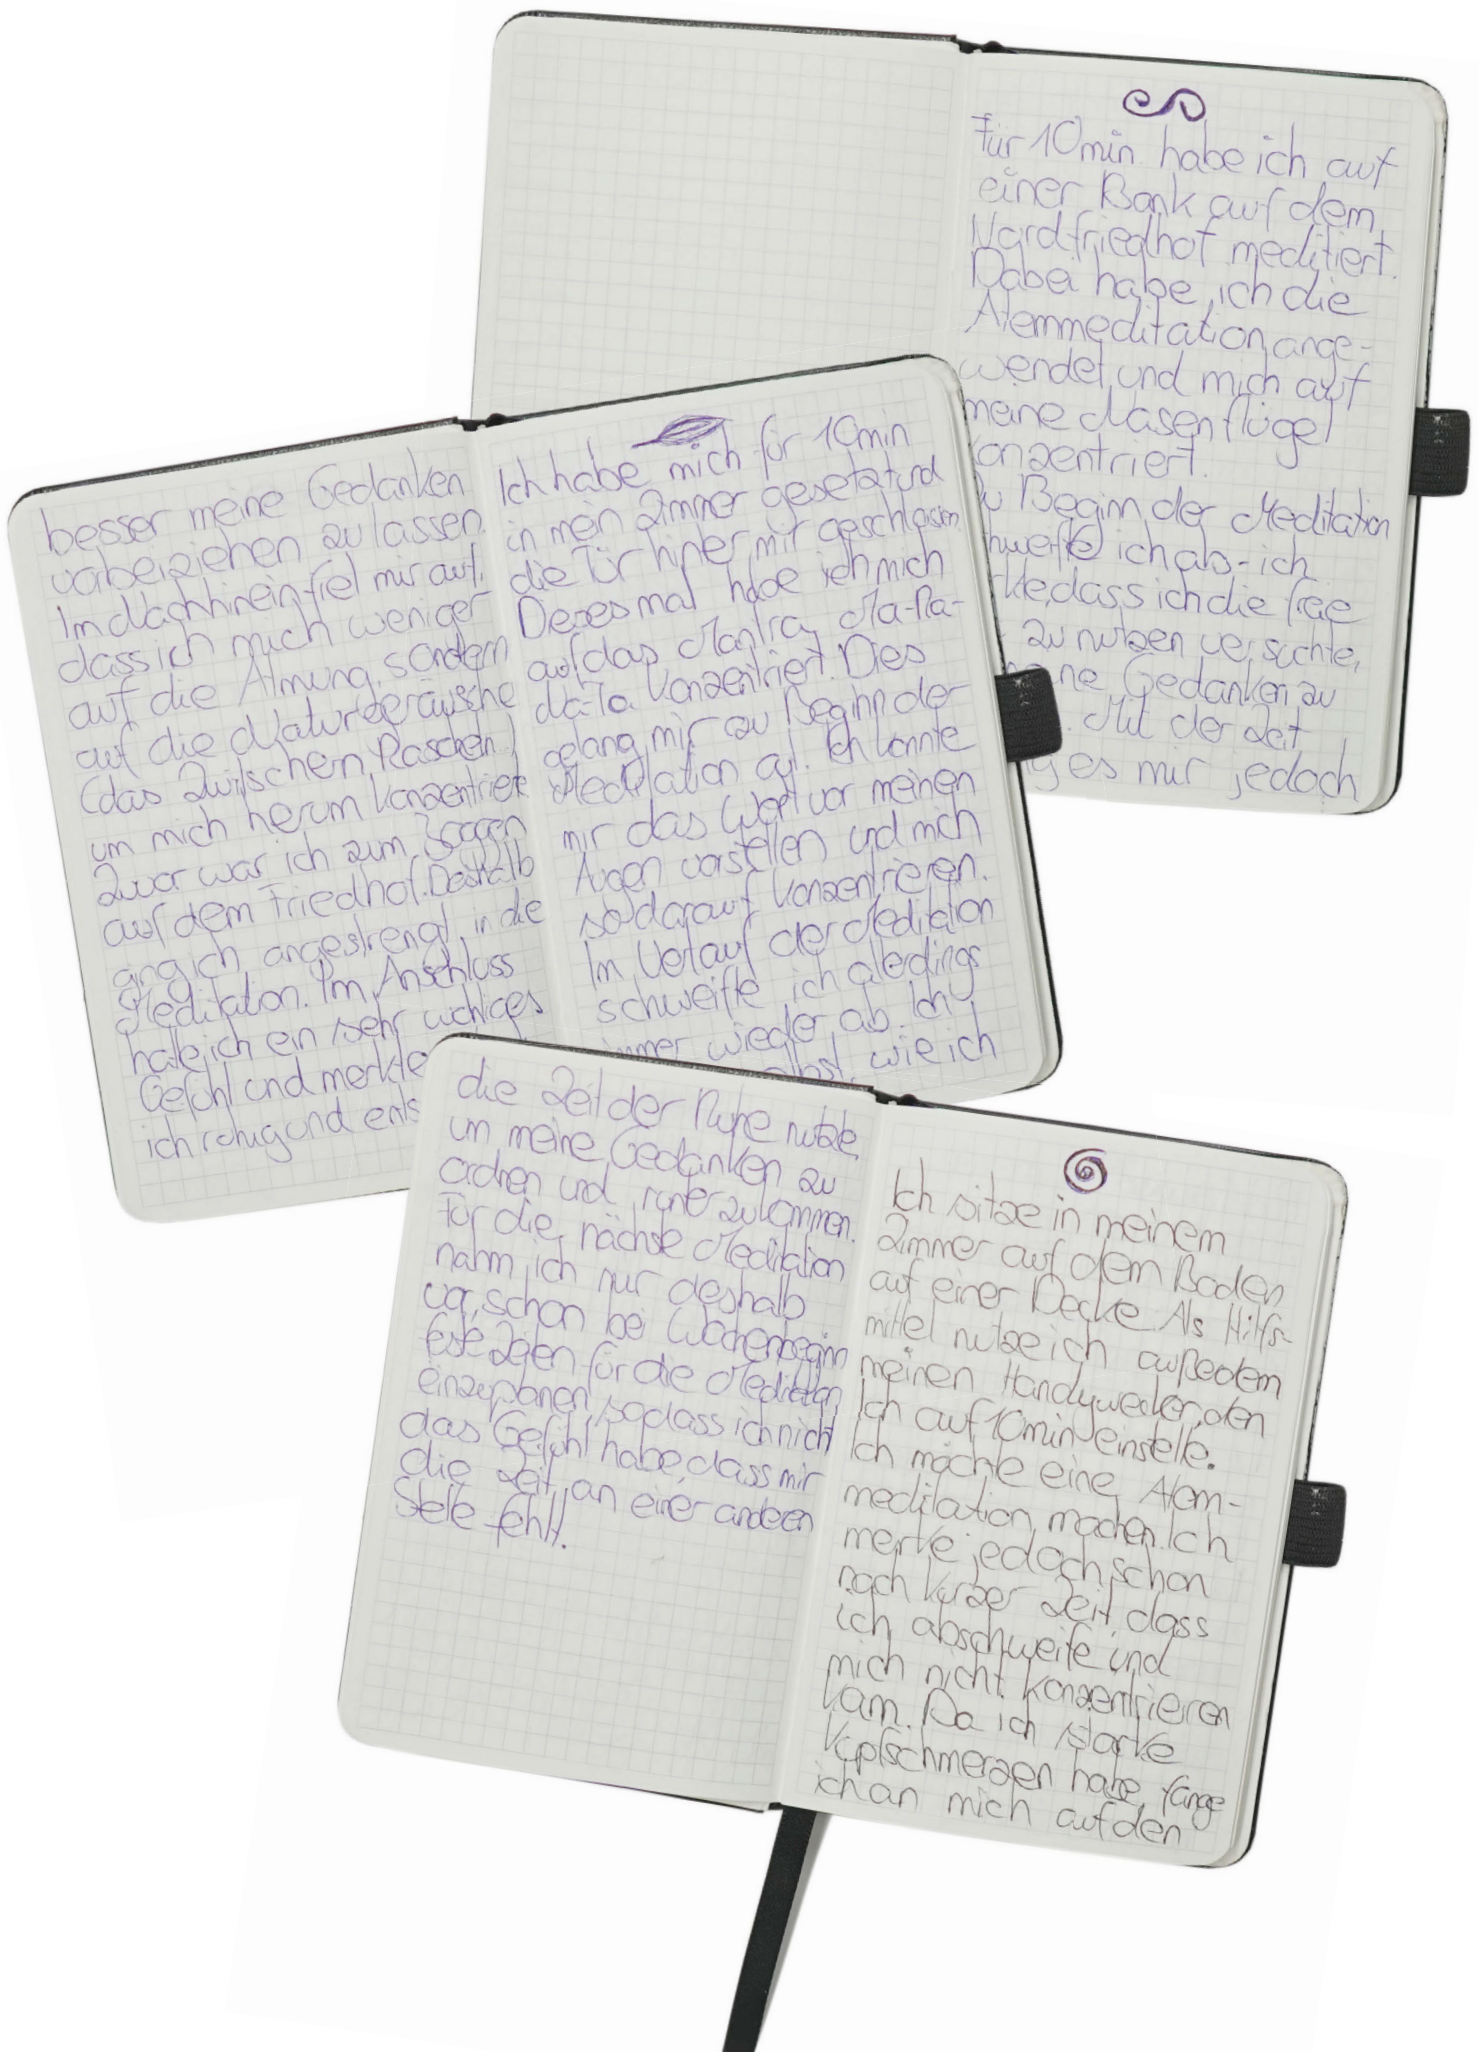 Für 10min habe ich auf
einer Bank auf dem
Nordfriedhof meditiert.
Dabei habe ich die
Atemmeditation ange-
wendet und mich auf
meine Nasenflügel
konzentriert.
Zu Beginn der Meditation
ich ab - ich
dass ich die freie
zu nutzen versuchte,
Gedanken zu
Mit der Zeit
es mir jedoch
besser meine Gedanken
vorbeiziehen zu lassen.
Im Nachhinein fiel mir auf,
dass ich mich weniger
auf die Atmung, sondern
auf die Naturgeräusche
(das Zwitschern, Rascheln)
um mich herum konzentrierte
Zuvor war ich zum Joggen
auf dem Friedhof. Deshalb
ging ich angestrengt in die
Meditation. Im Anschluss
hatte ich ein sehr wohliges
Gefühl und merkte
ich ruhig und ents
Ich habe mich für 10min
in mein Zimmer gesetzt und
die Tür hinter mir geschlossen.
Dieses mal habe ich mich
auf das Mantra Ma-Ra-
na-Ta konzentriert. Dies
gelang mir zu Beginn der
Meditation gut. Ich konnte
mir das Wort vor meinen
Augen vorstellen und mich
so darauf konzentrieren.
Im Verlauf der Meditation
schweifte ich allerdings
immer wieder ab. Ich
wie ich
die Zeit der Ruhe nutzte,
um meine Gedanken zu
ordnen und runterzukommen.
Für die nächste Meditation
nahm ich mir deshalb
vor, schon bei Wochenbeginn
feste Zeiten für die Meditation
einzuplanen, sodass ich nicht
das Gefühl habe, dass mir
die Zeit an einer anderen
Stelle fehlt.
Ich sitze in meinem
Zimmer auf dem Boden
auf einer Decke. Als Hilfs-
mittel nutze ich außerdem
meinen Handywecker, den
Ich auf 10min einstelle.
Ich möchte eine Atem-
meditation machen. Ich
merke jedoch schon
nach kurzer Zeit, dass
ich abschweife und
mich nicht konzentrieren
kann. Da ich starke
Kopfschmerzen habe, fange
ich an mich auf den